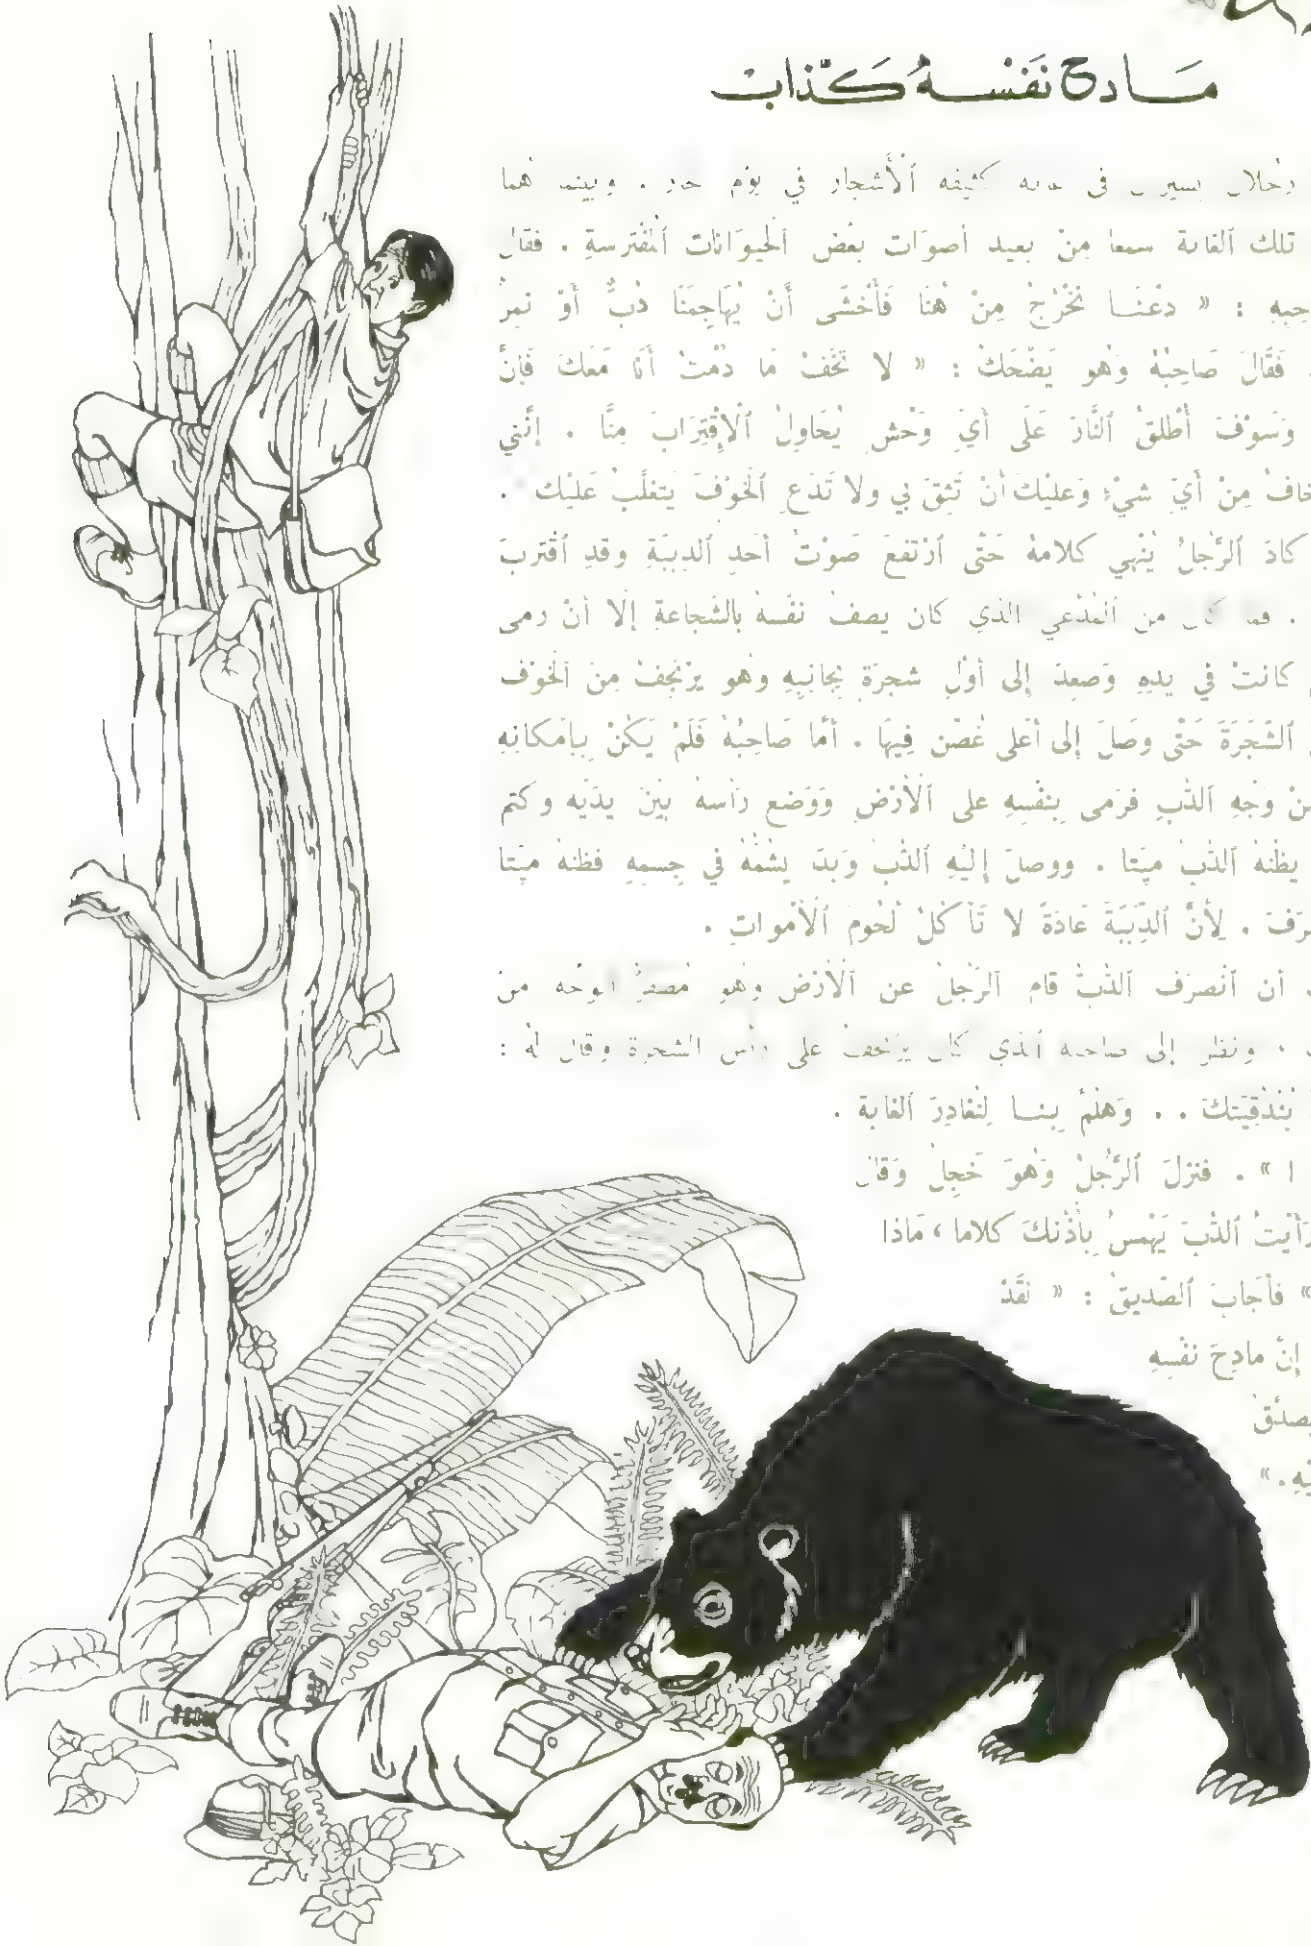 مَادِحُ نَفْسِهُ كَذَّابٌ
رجلان يسيران في غابة كثيفة ٱلْأَشجار في يَوْمٍ حار . وبينما هما
تلك ٱلغابة سمعا مِنْ بعيد أصوَات بعْض ٱلْحيوَانات ٱلمُفْترسةِ . فقال
: « دعْنَا نَخْرُجْ مِنْ هُنا فَأَخْشَى أَنْ يُهَاجِمَنَا دُبٌّ أَوْ نمِرٌ
فَقَالَ صَاحِبُهُ وَهُو يَضْحَكُ : « لا تَخَفْ مَا دُمْتُ أَنَا مَعَكَ فَإِنَّ
وَسَوْفَ أُطْلِقُ ٱلنَّارَ عَلَى أَيِّ وَحْشٍ يُحَاوِلُ ٱلْإِقْتِرَابَ مِنَّا . إنَّني
مِنْ أَيِّ شيْءٍ وَعليْكَ أَنْ تَثِقَ بي ولا تَدَعِ ٱلْخوْفَ يَتغلَّب عَليْك .
كادَ ٱلرَّجلُ يُنْهي كلامهُ حَتَّى ٱرْتفعَ صَوْتُ أحدِ ٱلدِببَةِ وقدِ ٱقْتربَ
. فما كان من ٱلمُدَّعي الذي كان يصفُ نفْسهُ بالشَّجاعةِ إلا أنْ رمى
كانتْ في يدهِ وَصعِدَ إلى أوّلِ شجرَةٍ بجانِبِهِ وهو يرْتجفُ مِنَ ٱلْخوْف
ٱلشَّجَرَةَ حَتَّى وصَلَ إلى أعْلى غُصْنٍ فِيهَا . أمَّا صَاحِبُهُ فَلَمْ يَكُنْ بِإِمْكانِهِ
وَجْهِ ٱلدُّبِ فرَمى بِنفْسِهِ على ٱلْأَرْضِ وَوَضع رَأْسهُ بيْنَ يدَيْه وكتم
يظنهُ ٱلدُّبُ ميّتا . ووصلَ إليْهِ ٱلدُّبُ وَبدَ يشمُّهُ في جِسمِهِ فظنهُ ميّتا
. لِأَنَّ ٱلدِّبَبَةَ عَادَةً لا تَأْكُلُ لُحُومَ ٱلْأَمْواتِ .
أن ٱنْصرَف ٱلدُّبُّ قام ٱلرَّجلُ عن ٱلْأَرْضِ وهو مُصفرُّ الوجه من
، ونظر إلى صاحبه ٱلذي كان يرْتجفُ على رأس الشجرة وقال لهُ :
بُنْدُقِيَتكَ . . وَهَلُمَّ بِنا لِنُغَادِرَ ٱلْغابة .
ا » . فنزلَ ٱلرَّجُلُ وَهُوَ خَجِلٌ وَقالَ
رَأَيْتُ ٱلدُّبَ يَهْمِسُ بِأُذُنِكَ كلاما ، مَاذا
» فأجَابَ ٱلصَّديقُ : « لَقَدْ
إنَّ مادِحَ نفْسِهِ